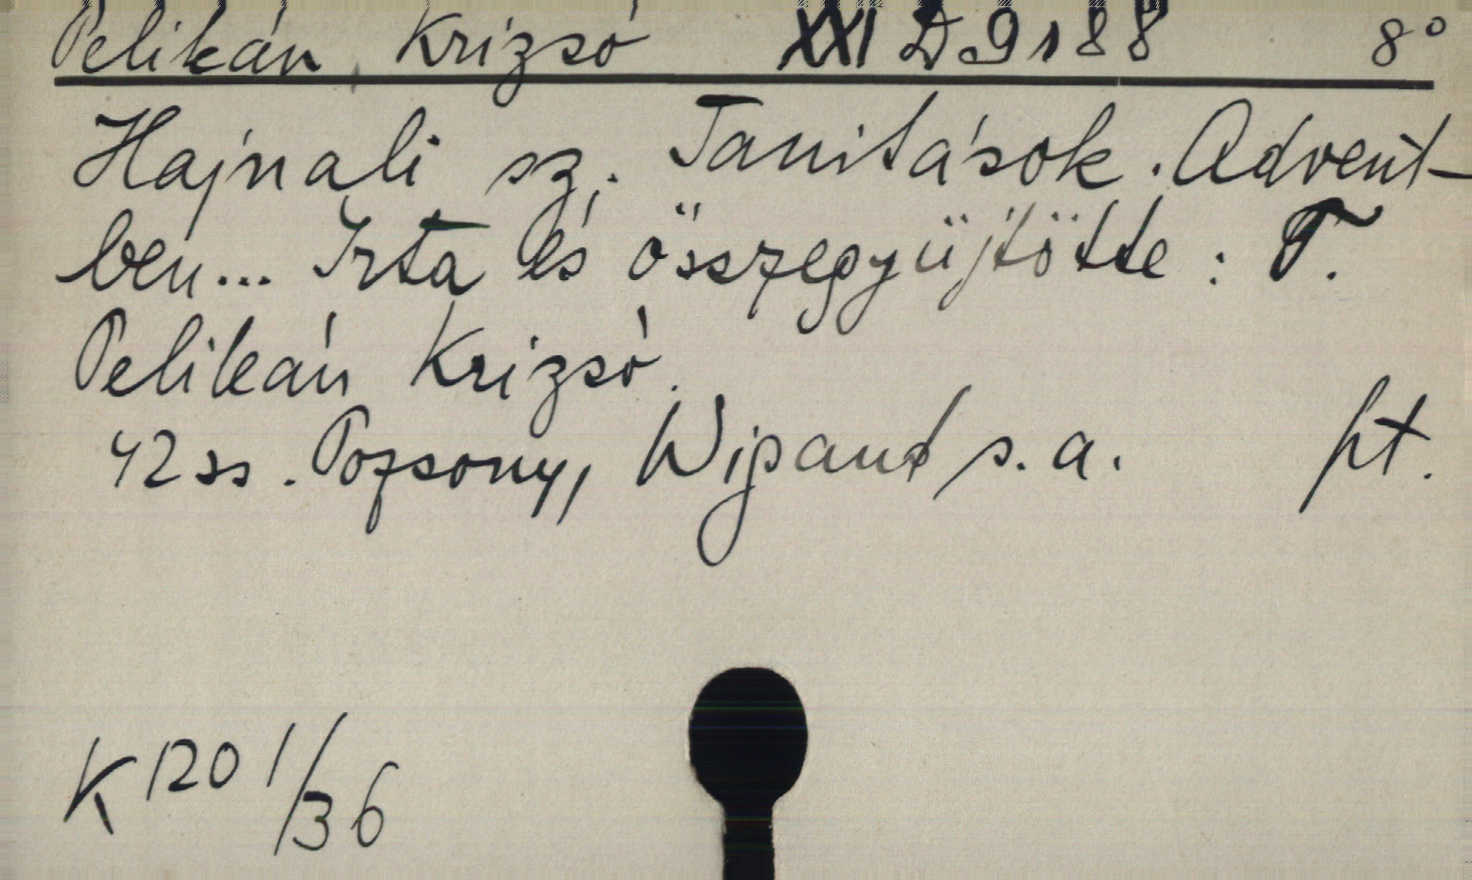 Pelikán, Krizsó XXI D 9188 8°
Hajnali sz. Tanitások. Advent-
ben... Irta és összegyüjtötte: T.
Pelikán Krizsó.
42 ss. Pozsony, Wigand s. a. ft.
K 1201/36